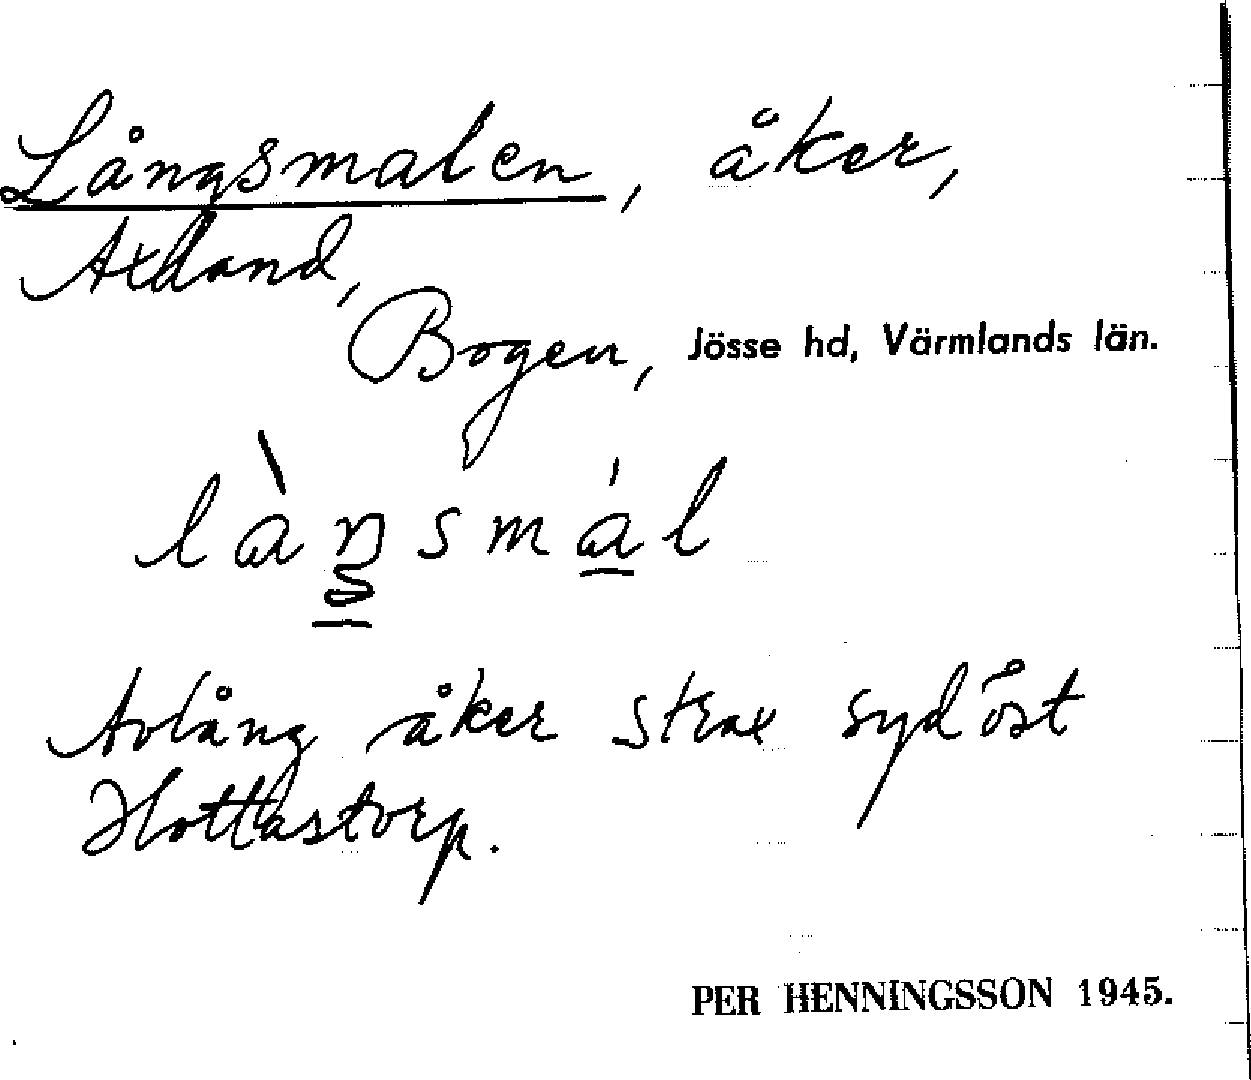 Långsmalen, åker,
Axland,
Bogen, Jösse hd, Värmlands län.
làŋsmál
Avlång åker strax sydöst
Hottastorp.
PER HENNINGSSON 1945.